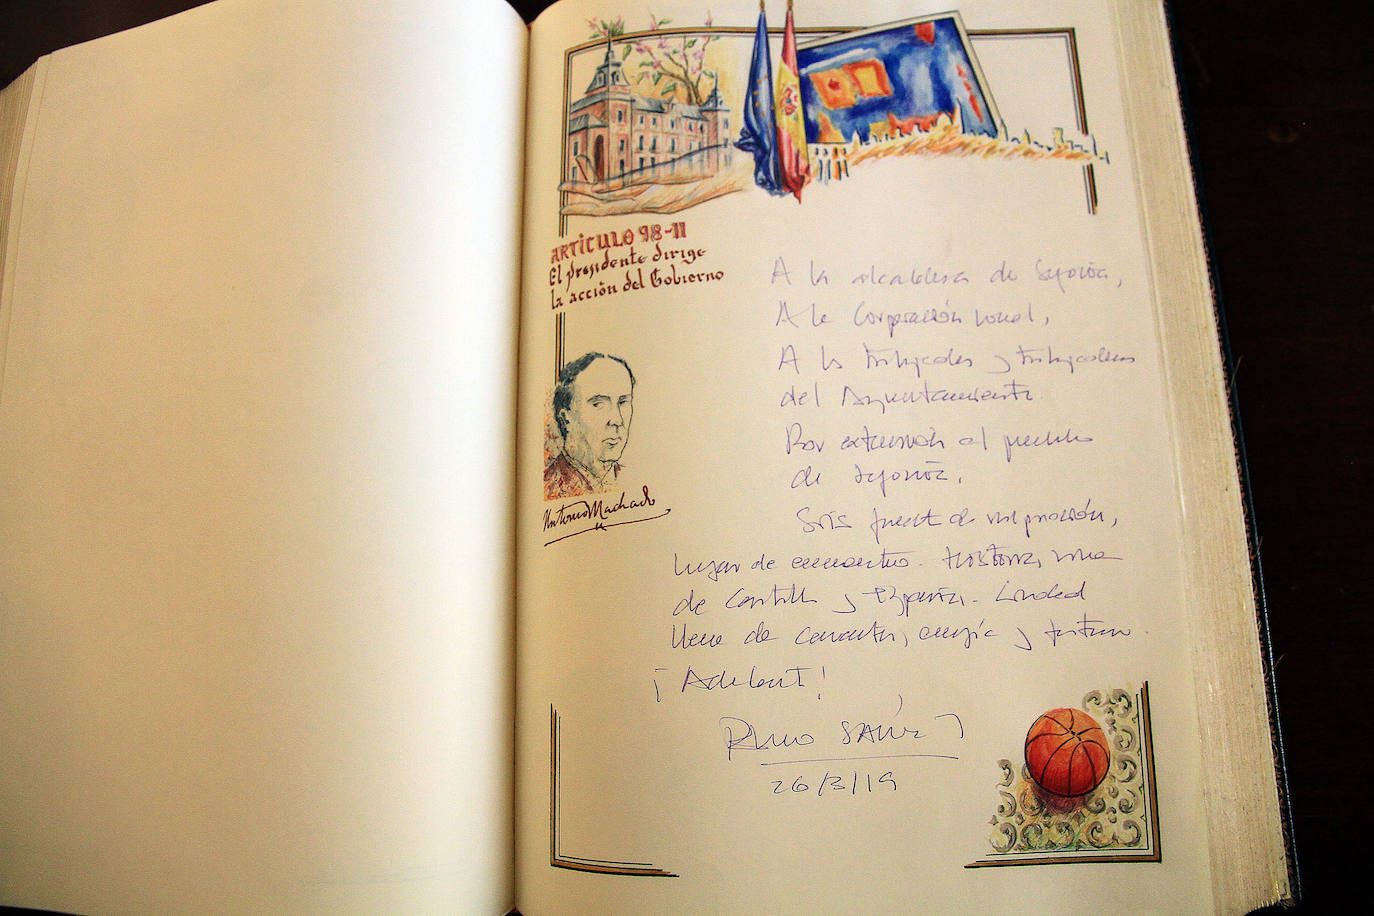 ARTÍCULO 98-II
El presidente dirige
la acción del Gobierno
Antonio Machado
A la alcaldesa de Segovia,
A la Corporación local,
A los trabajadores y trabajadoras
del Ayuntamiento.
Por extensión al pueblo
de Segovia.
Sois fuente de inspiración,
lugar de encuentro. historia, viva
de Castilla y España. Ciudad
llena de carácter, energía y futuro.
¡Adelante!
Pedro SÁNCHEZ
26/3/19